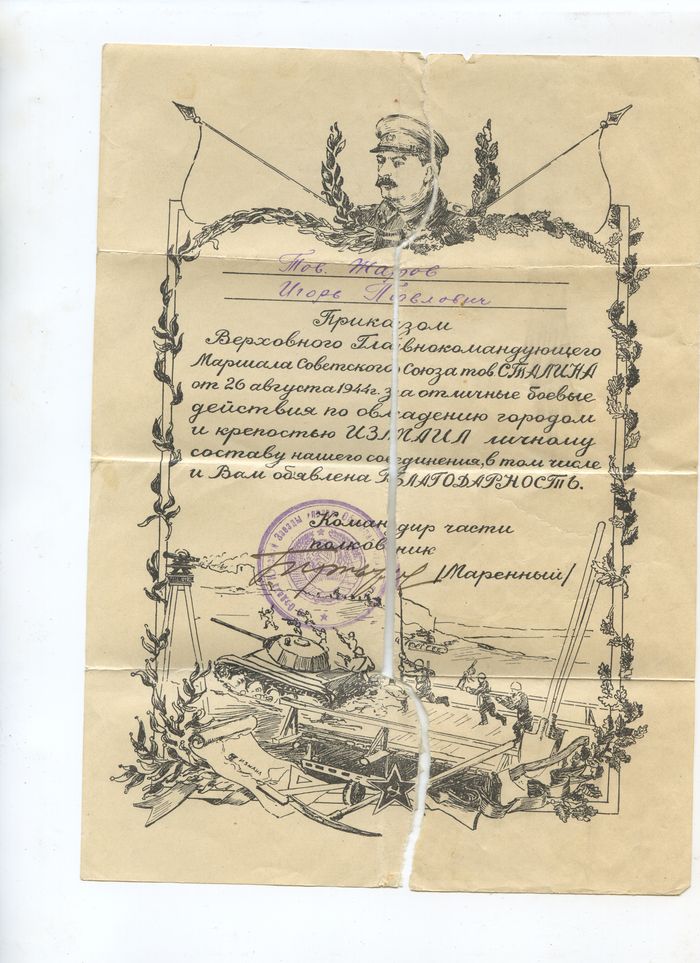 Тов. Жаров
Игорь Павлович
Приказом
Верховного Главнокомандующего
Маршала Советского Союза тов СТАЛИНА
от 26 августа 1944г. за отличные боевые
действия по овладению городом
и крепостью ИЗМАИЛ личному
составу нашего соединения, в том числе
и Вам объявлена БЛАГОДАРНОСТЬ.
Командир части
полковник
/Маренный/
ИЗМАИЛ